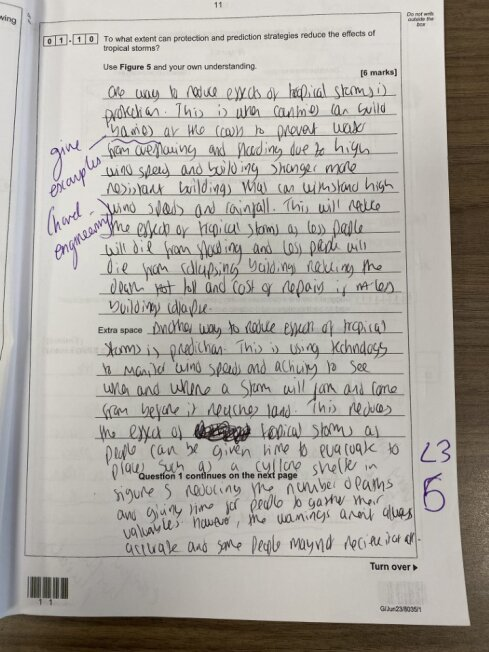 wing
11
Do not write
outside the
box
01.10 To what extent can protection and prediction strategies reduce the effects of
tropical storms?
Use Figure 5 and your own understanding.
[6 marks]
one way to reduce effects of tropical storms is
protection. This is when countries can build
barriers at the coast to prevent water
give
examples
from overflowing and flooding due to high
wind speed and building stronger more
resistant buildings that can withstand high
engineering
wind speeds and rainfall. This will reduce
the effects of tropical storms as less people
will die from flooding and less people will
die from collapsing buildings reducing the
death toll and cost of repairs if less
buildings collapse.
Extra space Another way to reduce effect of tropical
storms is prediction. This is using technology
to monitor wind speeds and activity to see
when and where a storm will form and come
from before it reaches land. This reduces
the effect of tropical storms as
people can be given time to evacuate to
places such as a cyclone shelter in
Question 1 continues on the next page
figure 5 reducing the number deaths
and giving time for people to gather their
valuables. However, the warnings arent always
accurate and some people may not receive it at all.
L3
5
Turn over
11
G/Jun23/8035/1